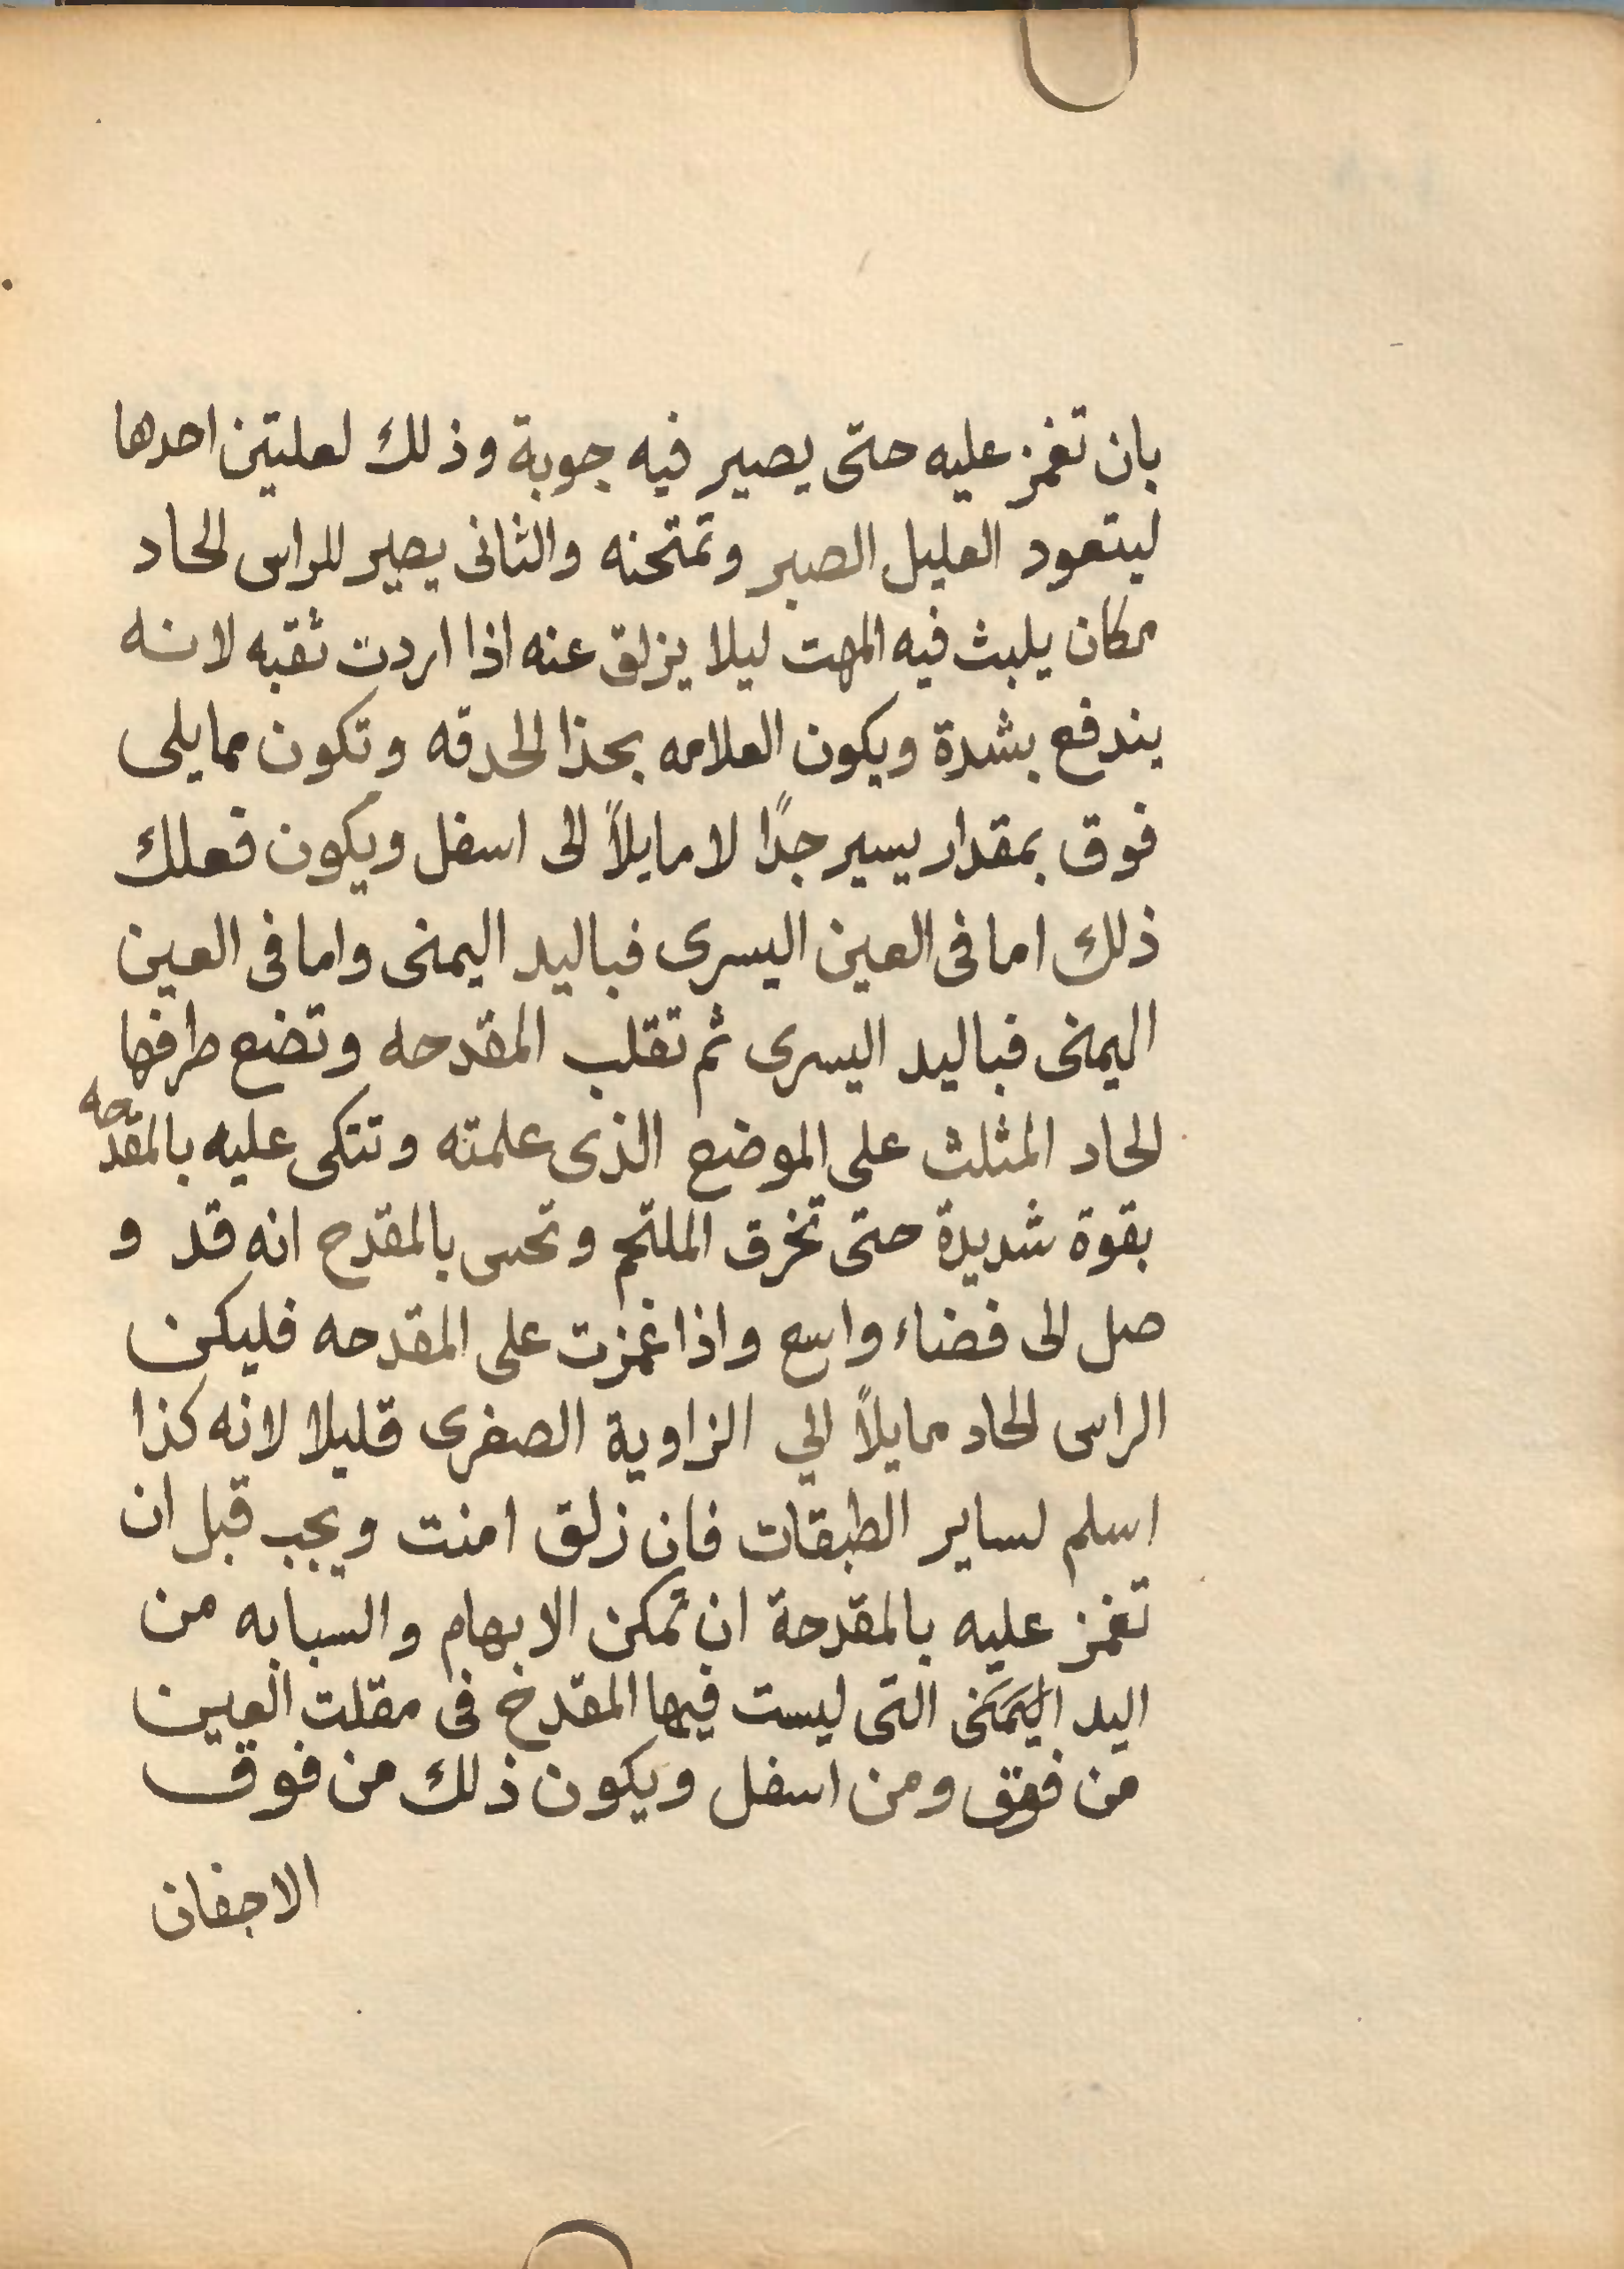 بان تغمز عليه حتى يصير فيه جوبة وذلك لعلتين احدها
ليتعود العليل الصبر وتمتحنه والثانى يصير للراس الحاد
مكان يلبث فيه المهت ليلا يزلق عنه اذا اردت ثقبه لانه
يندفع بشدة ويكون العلامه بحذا الحدقه وتكون مما يلى
فوق بمقدار يسير جدًا لا مايلاً الى اسفل ويكون فعلك
ذلك اما فى العين اليسرى فباليد اليمنى واما فى العين
اليمنى فباليد اليسرى ثم تقلب المقدحه وتضع طرفها
الحاد المثلث على الموضع الذى علمته وتتكى عليه بالمقدحه
بقوة شديدة حتى تخرق الملتحم وتحس بالمقدح انه قد و
صل الى فضاء واسع واذا غمزت على المقدحه فليكن
الراس الحاد مايلاً الي الزاوية الصغرى قليلا لانه كذا
اسلم لساير الطبقات فان زلق امنت ويجب قبل ان
تغمز عليه بالمقدحة ان تمكن الابهام والسبابه من
اليد اليمنى التى ليست فيها المقدح فى مقلت العين
من فوق ومن اسفل ويكون ذلك من فوق
الاجفان